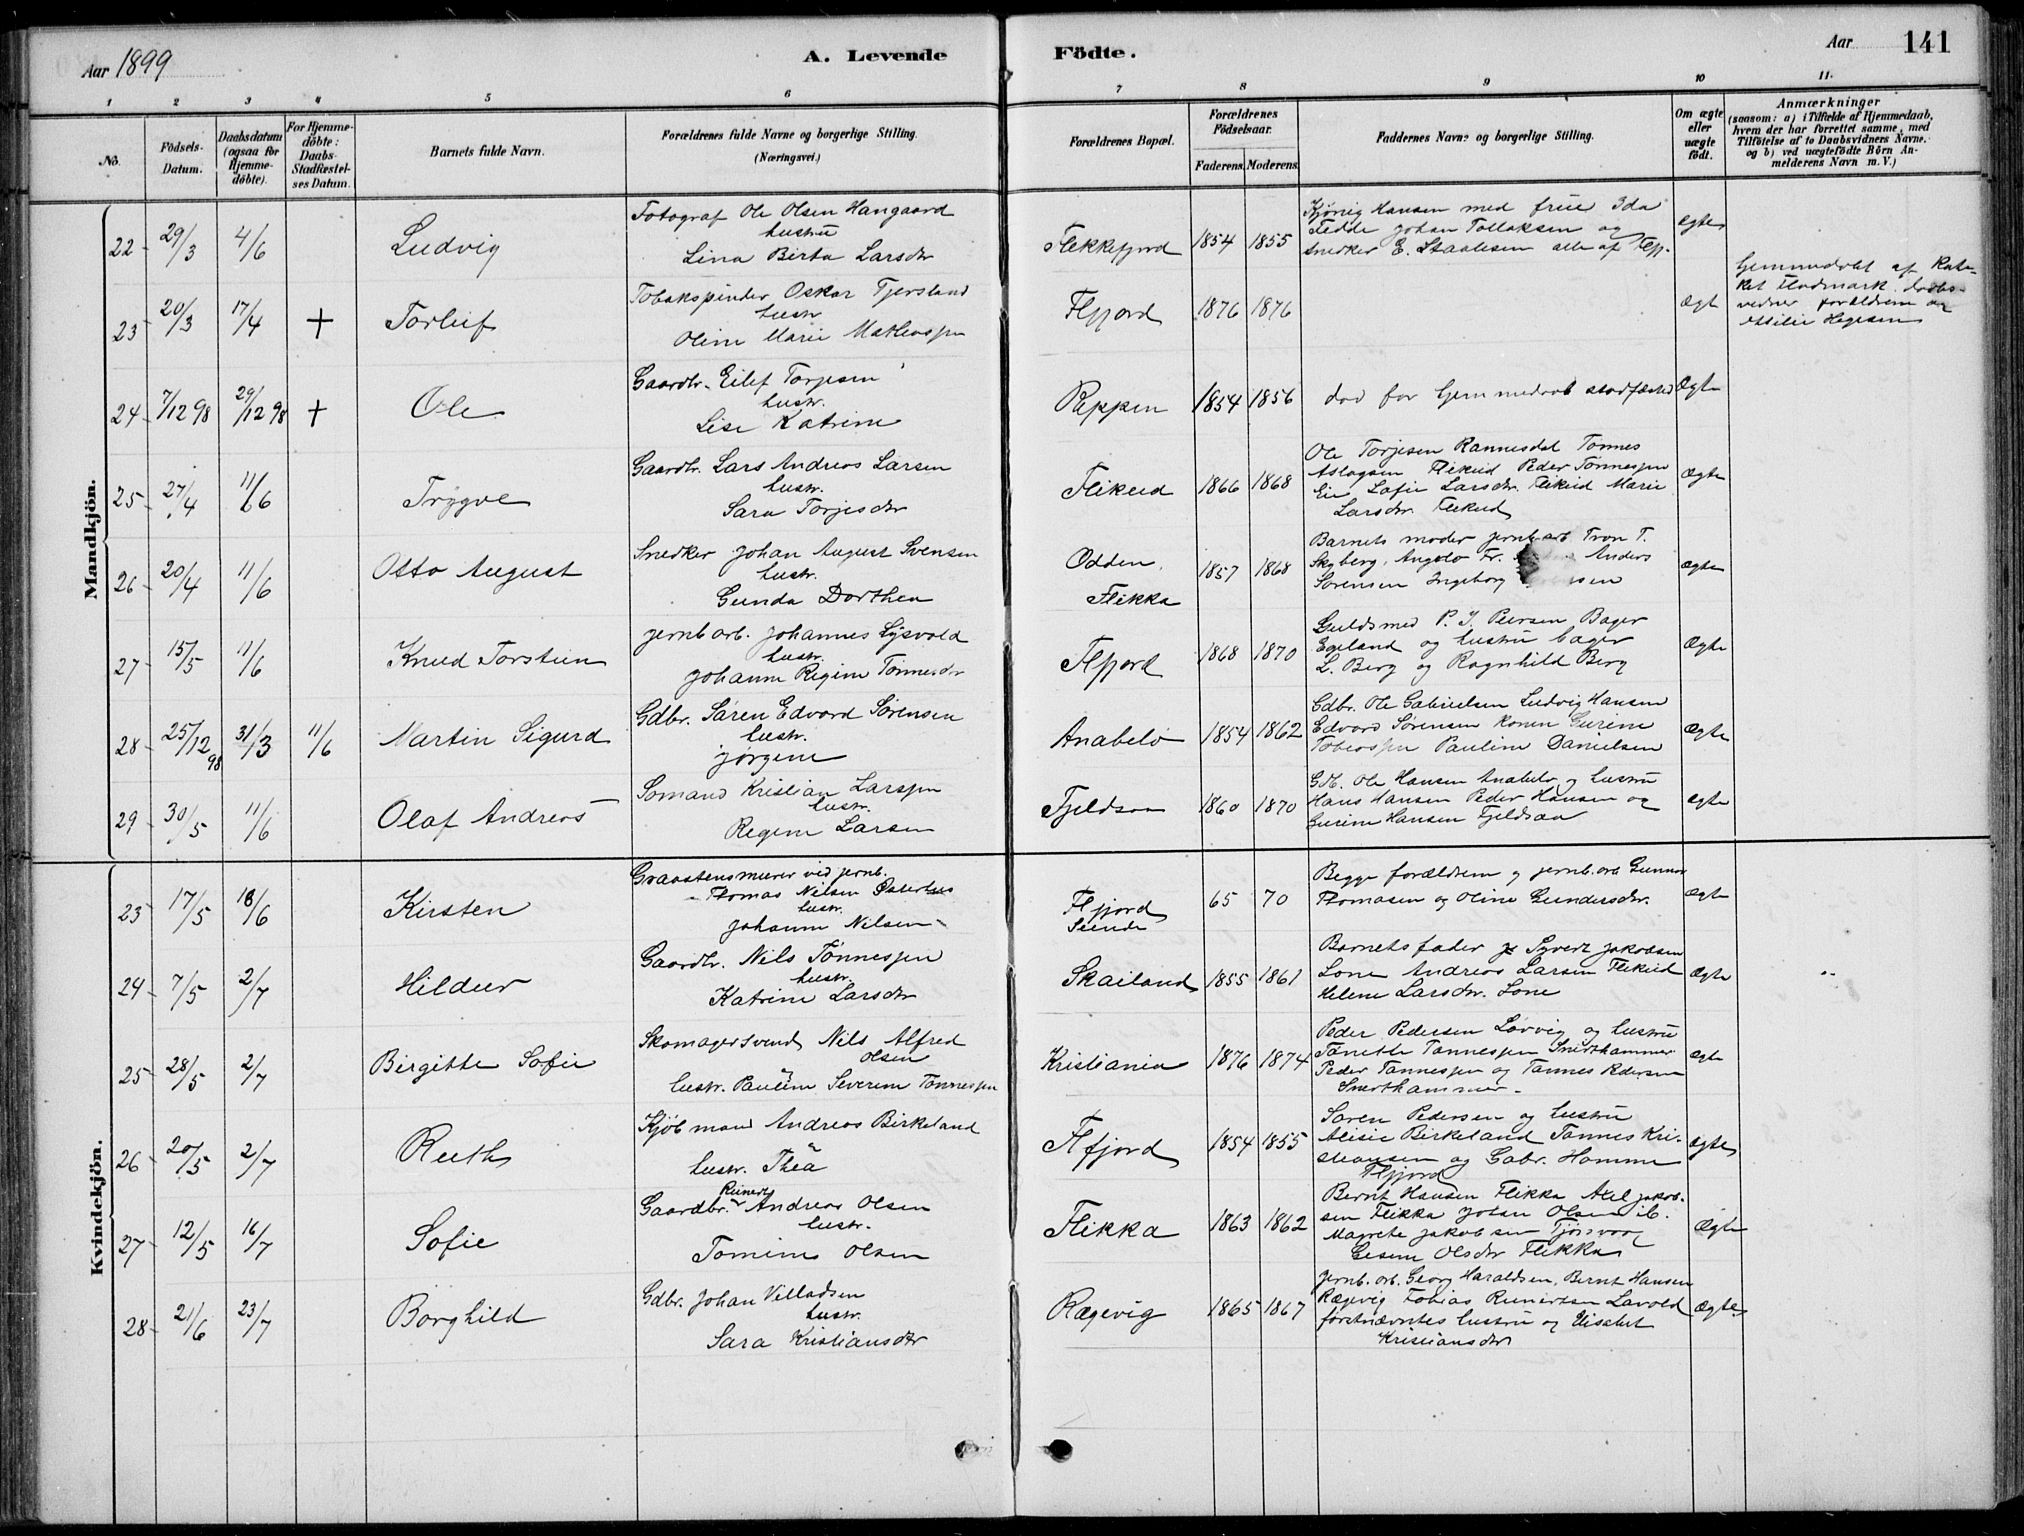 Aar 1899
A. Levende
Födte.
Aar
141
1 2 3 4 5 6 7 8 9 10 11.
No.
Födsels-
Datum.
Daabsdatum
(ogsaa for
Hjemme-
döbte).
For Hjemme-
döbte:
Daabs-
Stadfæstel-
ses Datum.
Barnets fulde Navn.
Forældrenes fulde Navne og borgerlige Stilling.
(Næringsvei.)
Forældrenes Bopæl.
Forældrenes
Födselsaar.
Faderens. Moderens.
Faddernes Navne og borgerlige Stilling.
Om ægte
eller
uægte
födt.
Anmærkninger
(saasom: a) i Tilfælde af Hjemmedaab,
hvem der har forrettet samme, med
Tilföielse af to Daabsvidners Navne.
og b) ved uægtefödte Börn An-
melderens Navn m. V.)
Mandkjön.
22 29/3 4/6 Ludvig
Fotograf Ole Olsen Hangaard
hustru
Lina Birta Larsdtr
Flekkefjord 1854 1855
Kjönig Hansen med frue Ida
Fedde Johan Tollaksen og
snedker E. Staalesen alle af Flfj.
ægte
23 20/3 17/4 + Torleif
Tobakspinder Oskar Tjersland
hustr
Oline Marie Mathiasen
Flfjord 1876 1876
ægt
Hjemmedøbt af Kate-
ket Flodmark. daabs-
vidner forældrene og
Ottilie Hegesen
24 7/12 98 29/12 98 + Ole
Gaardbr. Eilef Torjesen
hustr.
Lise Katrine
Røppen 1854 1856
død før hjemmedaab stadfæsted
Ægte
25 27/4 11/6 Trygve
Gaardbr. Lars Andreas Larsen
hustr.
Sara Torjesdtr
Flikeid 1866 1868
Ole Torjesen Rannesdal Tönnes
Aslagsen Flikeid Peder Tönnesen
Eie Sofie Larsdtr. Flikeid Marie
Larsdtr. Flikeid
Ægte
26 20/4 11/6 Otto August
Snedker Johan August Svensen
hustr.
Gunda Dorthea
Odden,
Flikka
1857 1868
Barnets moder jernb.arb Tron T.
Skyberg, Angelo Fr. Anders
Sörensen Ingeborg
ægte
27 15/5 11/6 Knud Torstein
jernb arb. Johannes Lysvold
hustr.
Johanne Regine Tönnesdtr
Flfjord 1868 1870
Guldsmed P. J. Peersen Bager
Egeland og hustru bager
L. Berg og Ragnhild Berg
Ægte
28 25/12 98 31/3 11/6 Martin Sigurd
Gdbr. Sören Edvard Sörensen
hustr.
Jörgine
Anabelö 1854 1862
Gdbr. Ole Gabrielsen Ludvig Hansen
Edvard Sörensen konen Gurine
Tobiasen Pauline Danielsen
Ægte
29 30/5 11/6 Olaf Andreas
Sömand Kristian Larsen
hustr.
Regine Larsen
Fjeldsaa 1860 1870
Gdb. Ole Hansen Anabelö og hustru
Hans Hansen Peder Hansen og
Gurine Hansen Fjeldsaa
ægte
Kvindekjön.
23 17/5 18/6 Kirsten
Graastensmurer ved jernb.
Thomas Nilsen Østerhus
hustr.
Johanne Nilsen
Flfjord
Sunde
65 70
Begge forældrene og jernb. arb Gunnar
Thomasen og Oline Gundersdtr.
ægte
24 7/5 2/7 Hildur
Gaardbr. Nils Tönnesen
hustr.
Katrine Larsdtr
Skailand 1855 1861
Barnets fader Syvert Jakobsen
Lone Andreas Larsen Flikeid
Helene Larsdtr. Lone
Ægte
25 28/5 2/7 Birgitte Sofie
Skomagersvend Nils Alfred
Olsen
hustr. Pauline Severine Tönnesen
Kristiania 1876 1874
Peder Pedersen Lövvig og hustru
Tanette Tönnesen Snerthammer
Peder Tönnesen og Tönnes Pedersen
Snerthammer
ægte
26 20/5 2/7 Ruth
Kjöbmand Andreas Birkeland
hustr. Thea
Flfjord 1854 1855
Sören Pedersen og hustru
Alisie Birkeland Tönnes Kri-
stiansen og Gabr. Homme
Flfjord
ægte
27 12/5 16/7 Sofie
Reinert
Gaardbr. Andreas Olsen
hustr.
Tomine Olsen
Flikka 1863 1862
Bernt Hansen Flikka Axel Jakob-
sen Flikka Johan Olsen ib.
Magrete Jakobsen Tjörsvaag
Gesine Olsdtr Flikka
Ægte
28 21/6 23/7 Borghild
Gdbr. Johan Villadsen
hustr.
Sara Kristiansdtr
Rægevig 1865 1867
Jernb. arb. Georg Haraldsen, Bernt Hansen
Rægevig Tobias Reinertsen Lavold
förstnævntes hustru og Elisabet
Kristiansdtr
Ægte